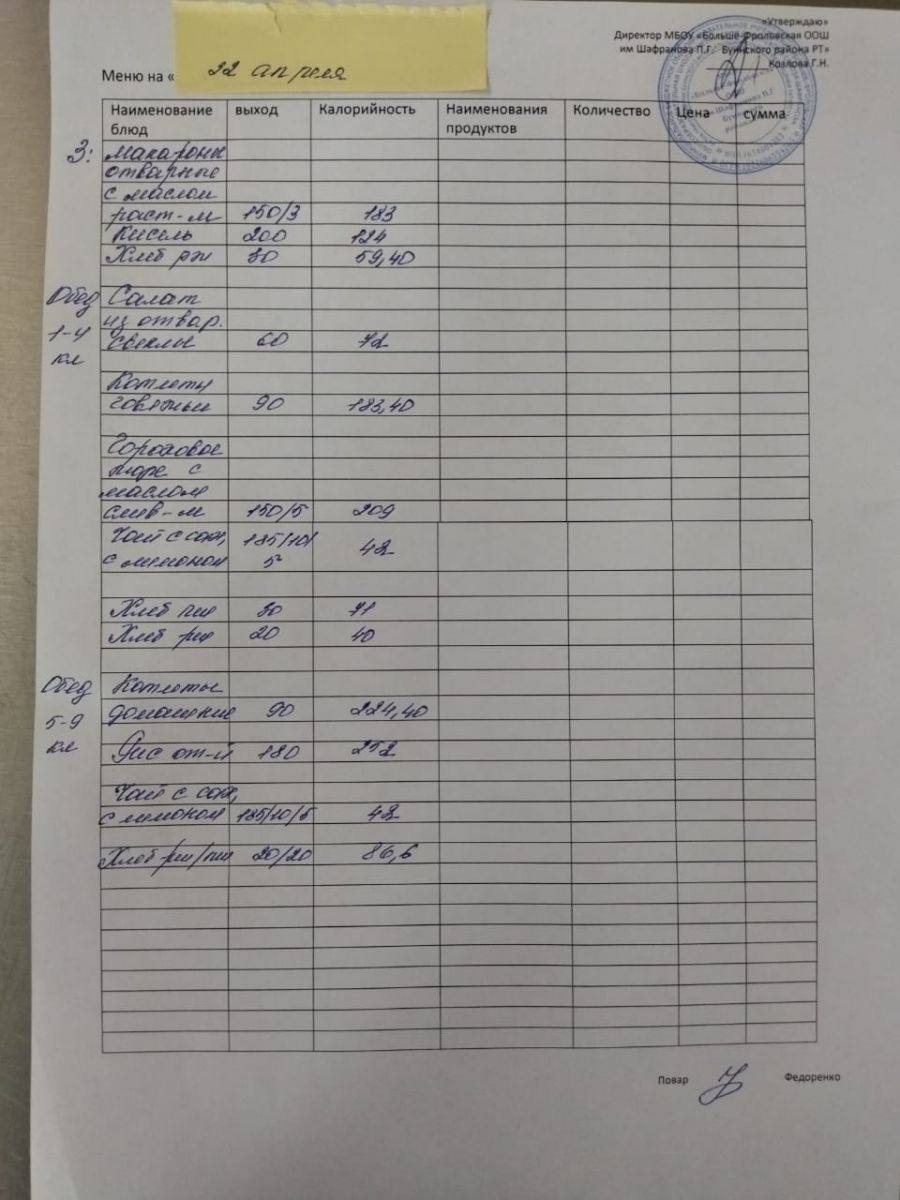 «Утверждаю»
Директор МБОУ «Больше-Фроловская ООШ
им Шафранова П.Г. Буинского района РТ»
Козлова Г.Н.
Меню на « 22 апреля
Наименование блюд выход Калорийность Наименования продуктов Количество Цена сумма
З: Макароны
отварные
с маслом
раст-м 150/3 183
Кисель 200 124
Хлеб рж 30 59,40
Обед Салат
из отвар.
1-4 свеклы 60 72
кл
Котлеты
говяжьи 90 183,40
Гороховое
пюре с
маслом
слив-м 150/5 209
Чай с сах, 185/10/
с лимоном 5 42
Хлеб пш 30 71
Хлеб рж 20 40
Обед Котлеты
5-9 домашние 90 224,40
кл Рис от-й 180 252
Чай с сах,
с лимоном 185/10/5 42
Хлеб рж/пш 20/20 86,6
Повар Федоренко